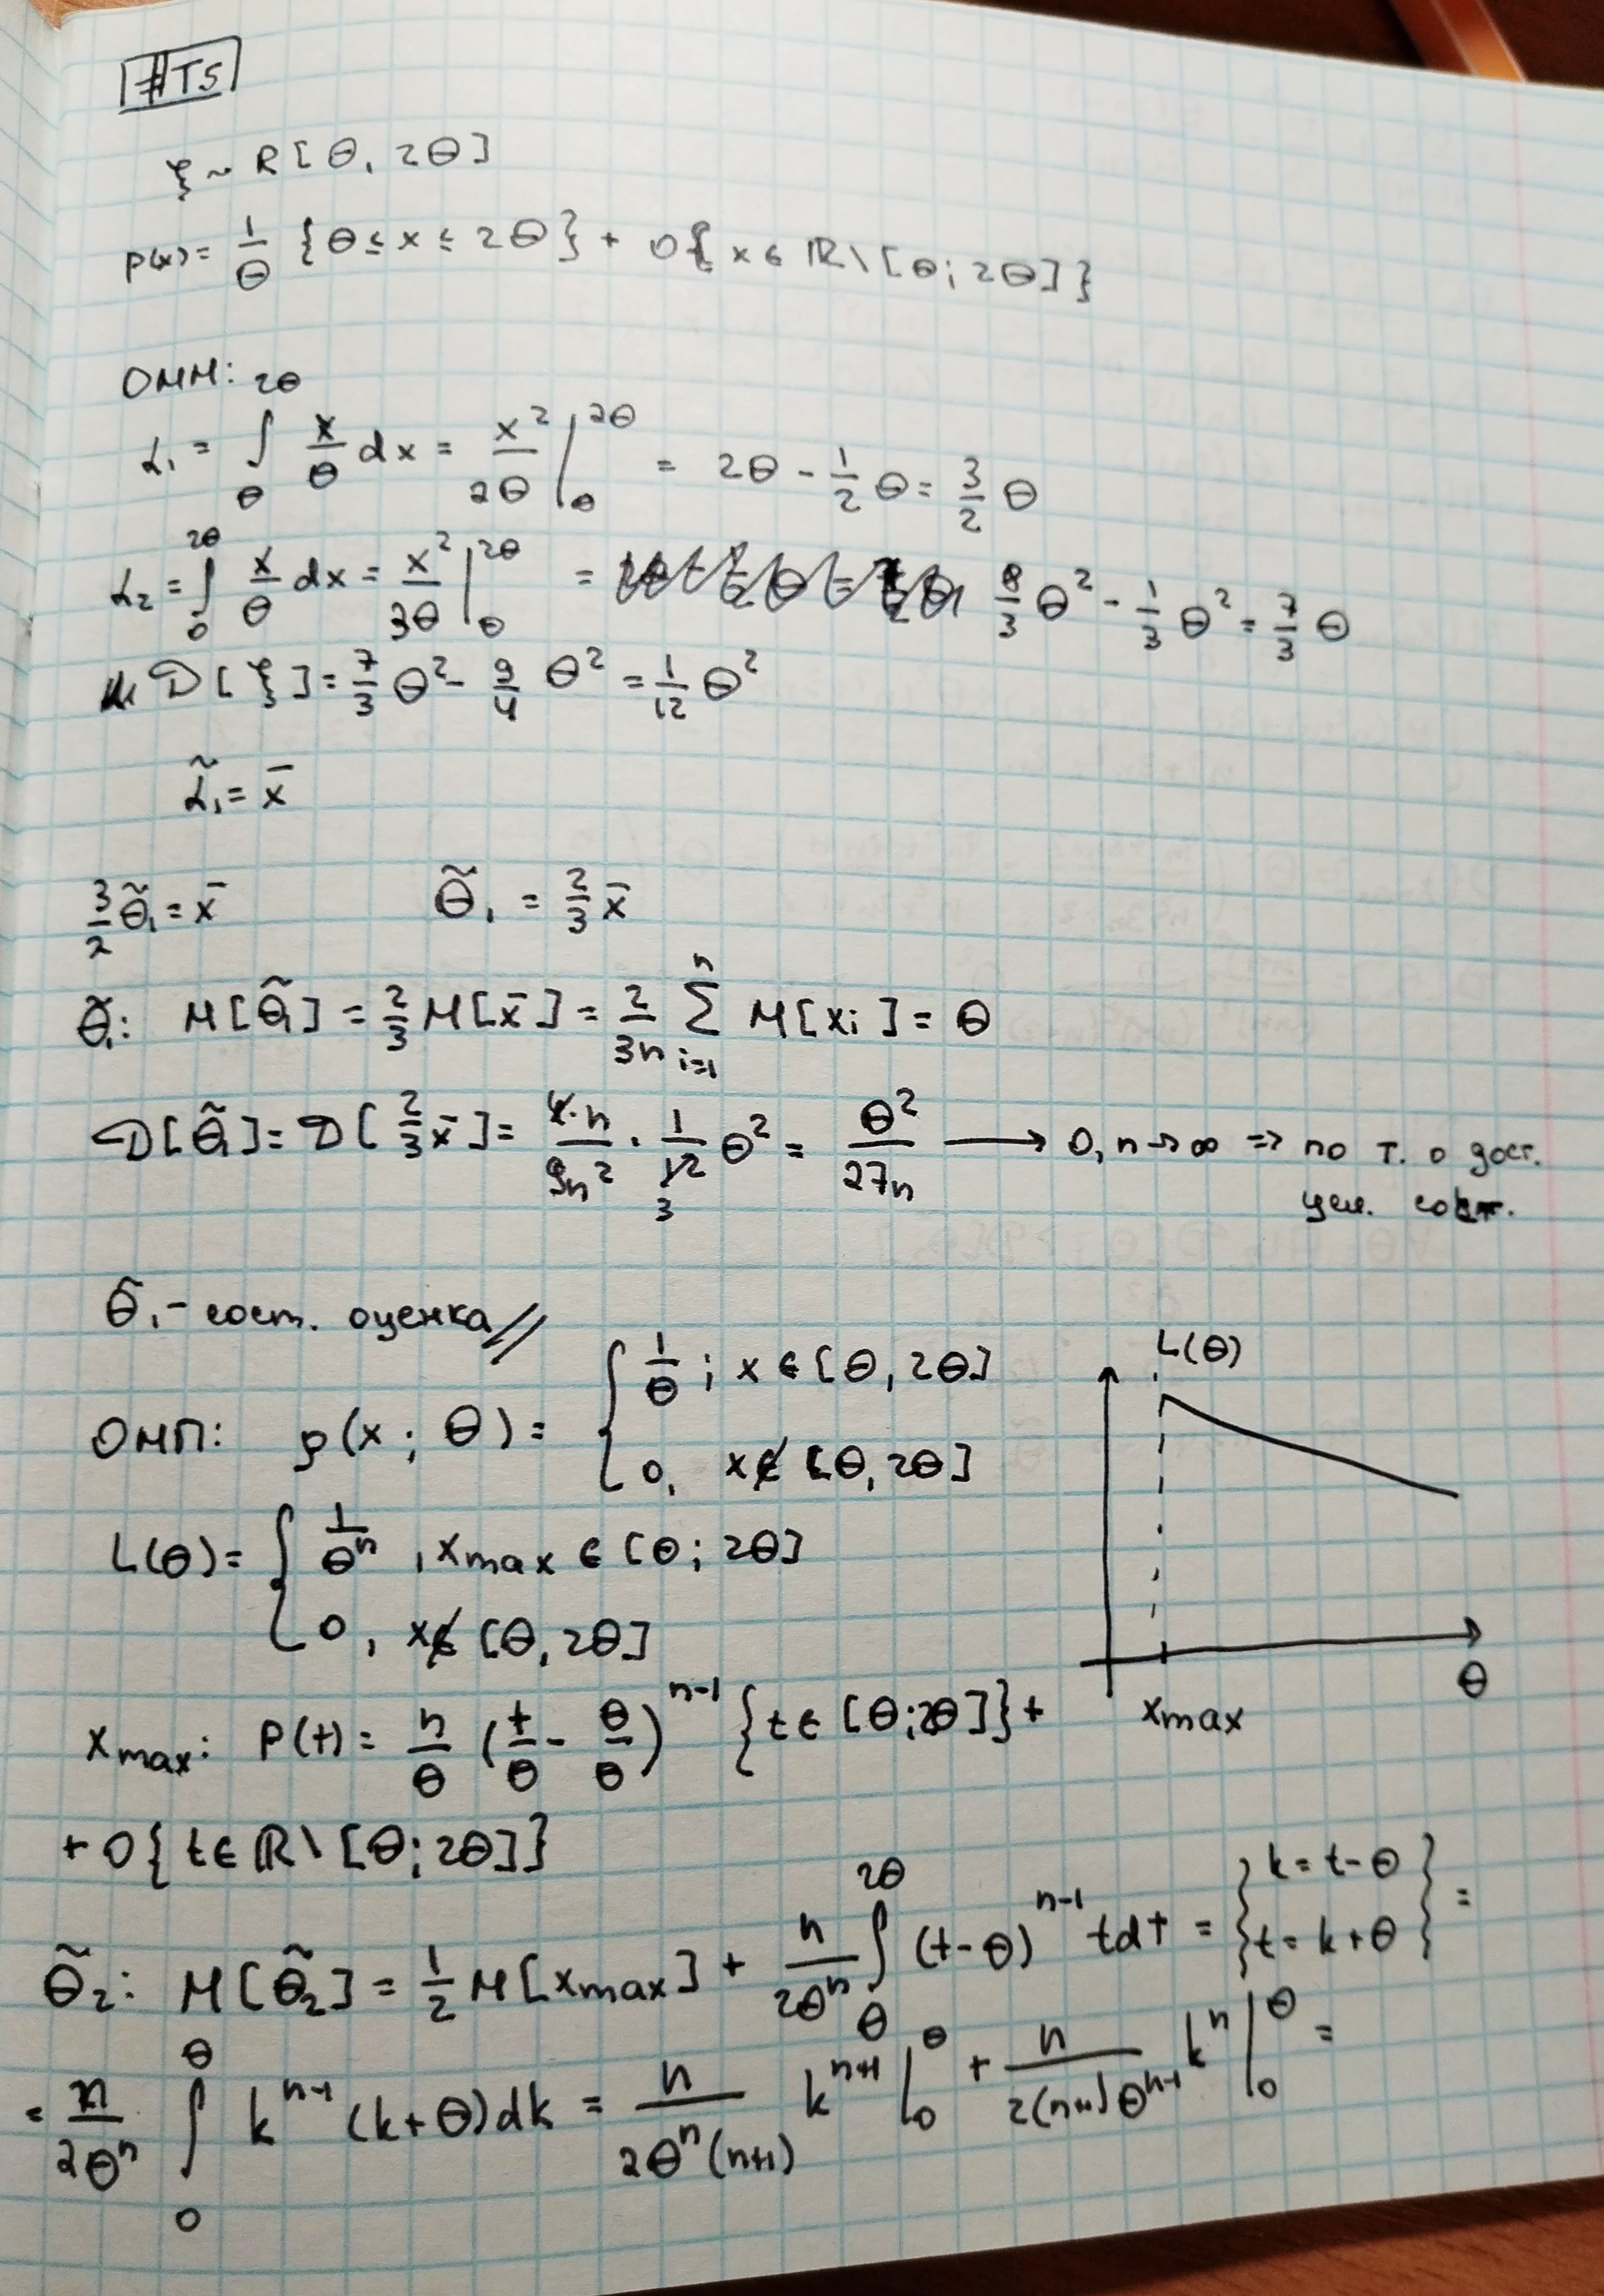 #T5
ξ ~ R[θ, 2θ]
p(x) = 1/θ {θ ≤ x ≤ 2θ} + 0{x ∈ ℝ \ [θ; 2θ]}
ОММ:
α₁ = ∫_θ^{2θ} x/θ dx = x²/2θ |_θ^{2θ} = 2θ - 1/2 θ = 3/2 θ
α₂ = ∫_0^{2θ} x/θ dx = x²/3θ |_θ^{2θ} = 8/3 θ² - 1/3 θ² = 7/3 θ
D[ξ] = 7/3 θ² - 9/4 θ² = 1/12 θ²
α̃₁ = x̄
3/2 θ̃₁ = x̄ θ̃₁ = 2/3 x̄
θ̃₁: M[θ̃₁] = 2/3 M[x̄] = 2/3n Σ_{i=1}^n M[xᵢ] = θ
D[θ̃₁] = D[2/3 x̄] = 4·n/9n² · 1/12 θ² = θ²/27n ⟶ 0, n → ∞ ⇒ по т. о дост.
3
усл. сост.
θ̃₁ - сост. оценка //
ОМП: p(x; θ) = { 1/θ ; x ∈ [θ, 2θ]
0, x ∉ [θ, 2θ]
L(θ)
L(θ) = { 1/θⁿ , xmax ∈ [θ; 2θ]
0, x ∉ [θ, 2θ]
θ
xmax
xmax: P(t) = n/θ (t/θ - θ/θ)^{n-1} {t ∈ [θ; 2θ]} +
+ 0{t ∈ ℝ \ [θ; 2θ]}
θ̃₂: M[θ̃₂] = 1/2 M[xmax] + n/2θⁿ ∫_θ^{2θ} (t-θ)^{n-1} t dt = {k = t-θ
t = k+θ} =
= n/2θⁿ ∫_0^θ k^{n-1} (k+θ) dk = n/2θⁿ(n+1) k^{n+1} |_0^θ + n/2(n+1)θ^{n-1} kⁿ |_0^θ =